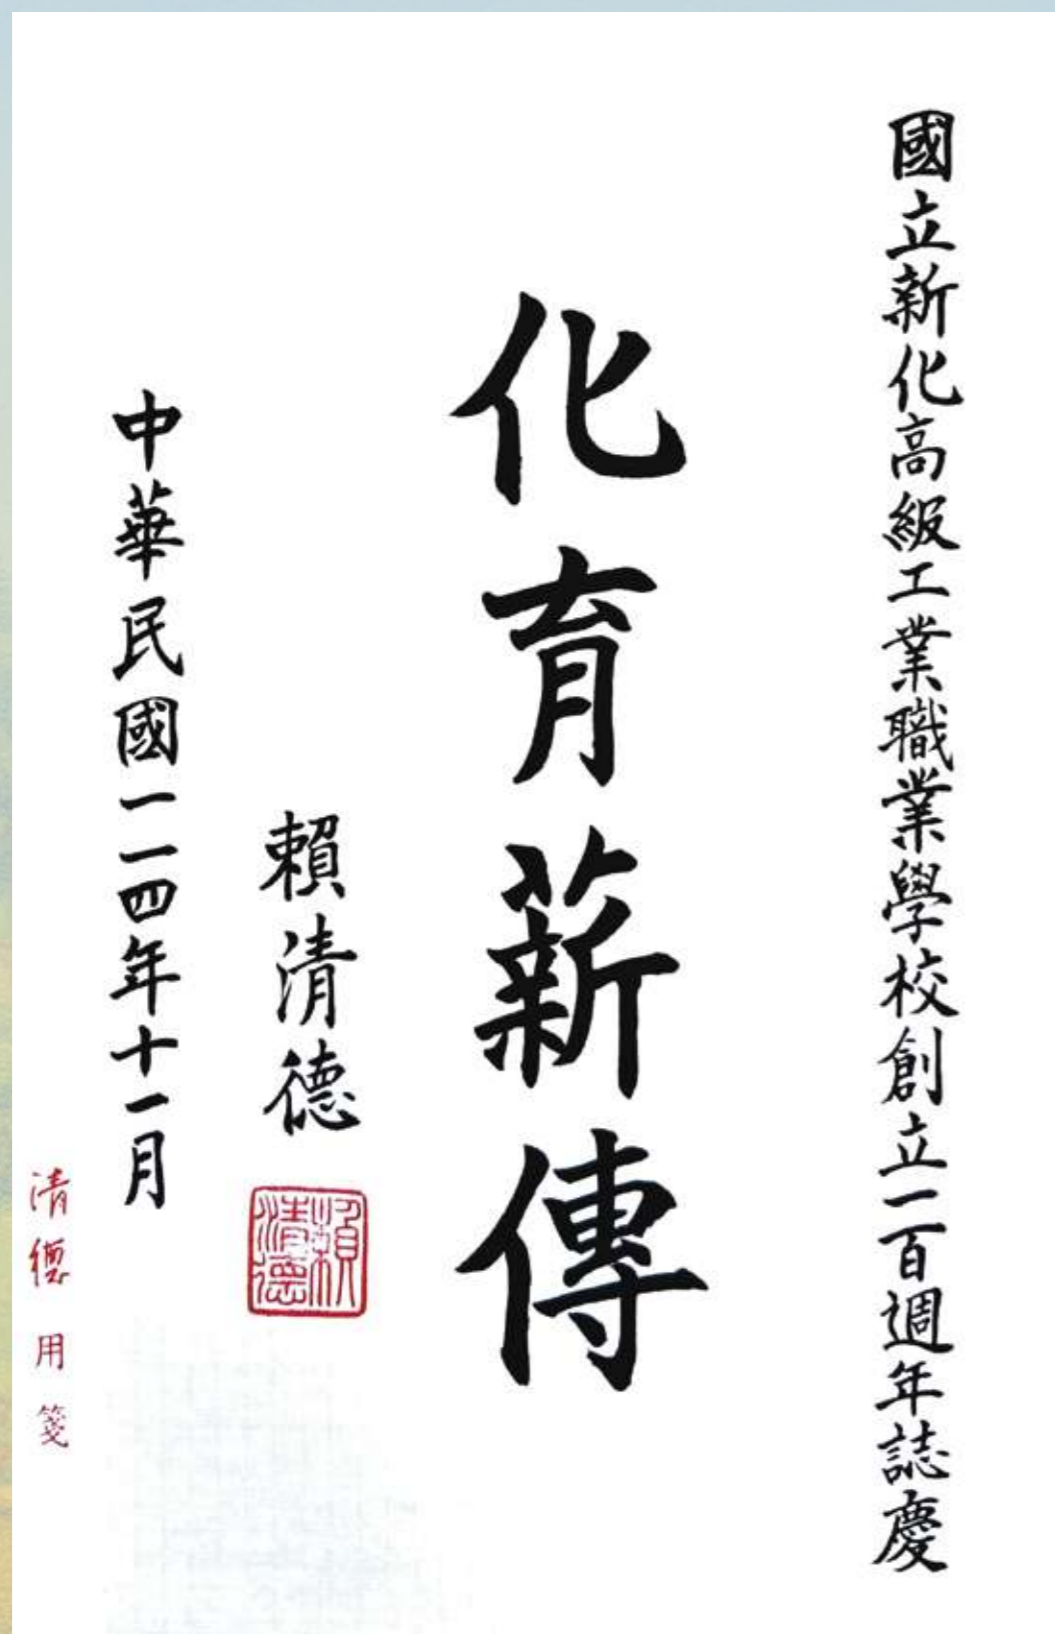 國立新化高級工業職業學校創立一百週年誌慶
化育薪傳
賴清德
賴清德
中華民國一一四年十一月
清德用箋